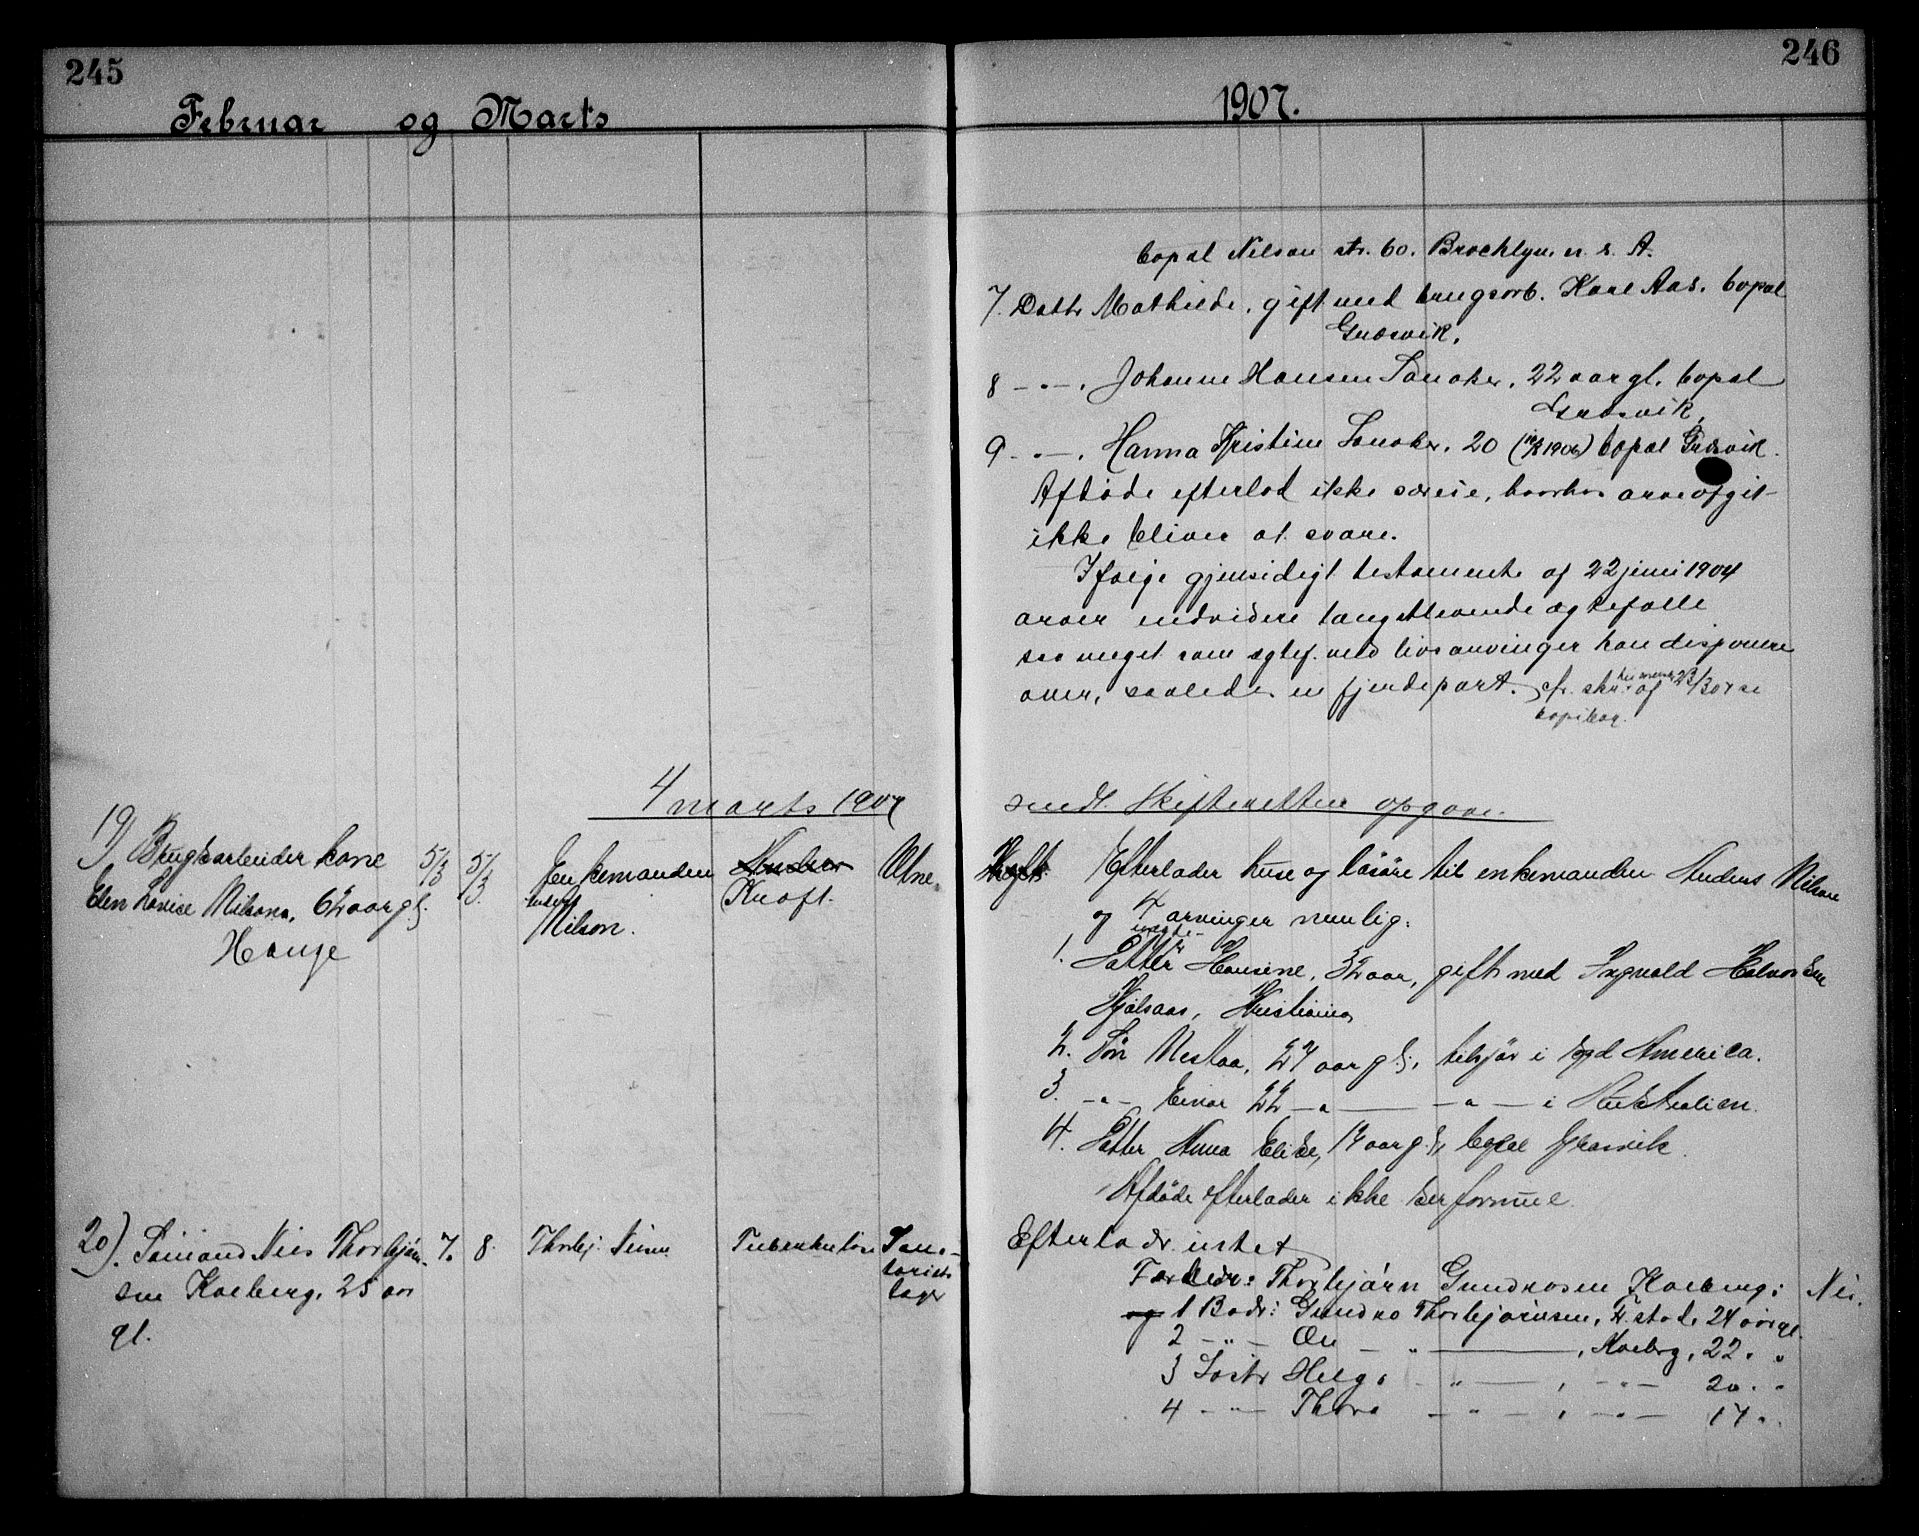 245
Februar og Marts
1907.
246
bopæl Nilson str. 60. Brocklyn. U. S. A.
7. Dattr Mathilde, gift med brugsarb. Karl Aas. bopæl
Græsvik.
8 - " -. Johanne Hansen Lanaker, 22 aar gl. bopæl
Græsvik.
9 - " -. Hanna Kristine Lanaker. 20 ( 1906) bopæl Græsvik.
Afdøde efterlod ikke særeie, hvorhos arveafgift
ikke bliver at svare.
Ifølge gjensidigt testamente af 22 juni 1904
arver endvidere længstlevende ægtefælle
saa meget som ægtef. med livsarvinger kan disponere
over, saaledes en fjerdepart.
kopibog.
4 marts 1907
sendt skifteretten opgave.
19) Brugsarbeider kone
Elen Lovise Nilsons, 62 aar gl.
Hauge
5/3
5/3.
Enkemanden
Anders
Nilson.
Kræft.
Utne.
Efterlader huse og løsøre til enkemanden Anders Nilson
og 4 arvinger nemlig:
1. Datter Hansine, 32 aar, gift med Ingvald Halvorsen
Kjølsaas, Kristiania
2. Søn Nestaa, 24 aar gl., tilsjøs i syd America.
3. - " - Einar 22 - " - - " - i Australien.
4. Datter Anna Elise, 17 aar gl., bopæl Græsvik.
Afdøde efterlader ikke særformue.
20). Sømand Nils Thorbjørn-
sen Kolberg. 25 aar
gl.
7.
8.
Thorbj. Nilsen
Tuberkulose
Sana-
toriets
læge
Efterlader intet
Forældre: Thorbjørn Gundrosen Kolberg:
Nei.
og 1 Broder: Gundro Thorbjørnsen, Fr.stad. 24 aar gl.
2 - " - Ole - " - , Kolberg, 22. "
3 Søster Helga - " - , - " - 20. "
4 - " - Thora - " - , - " - 17 "